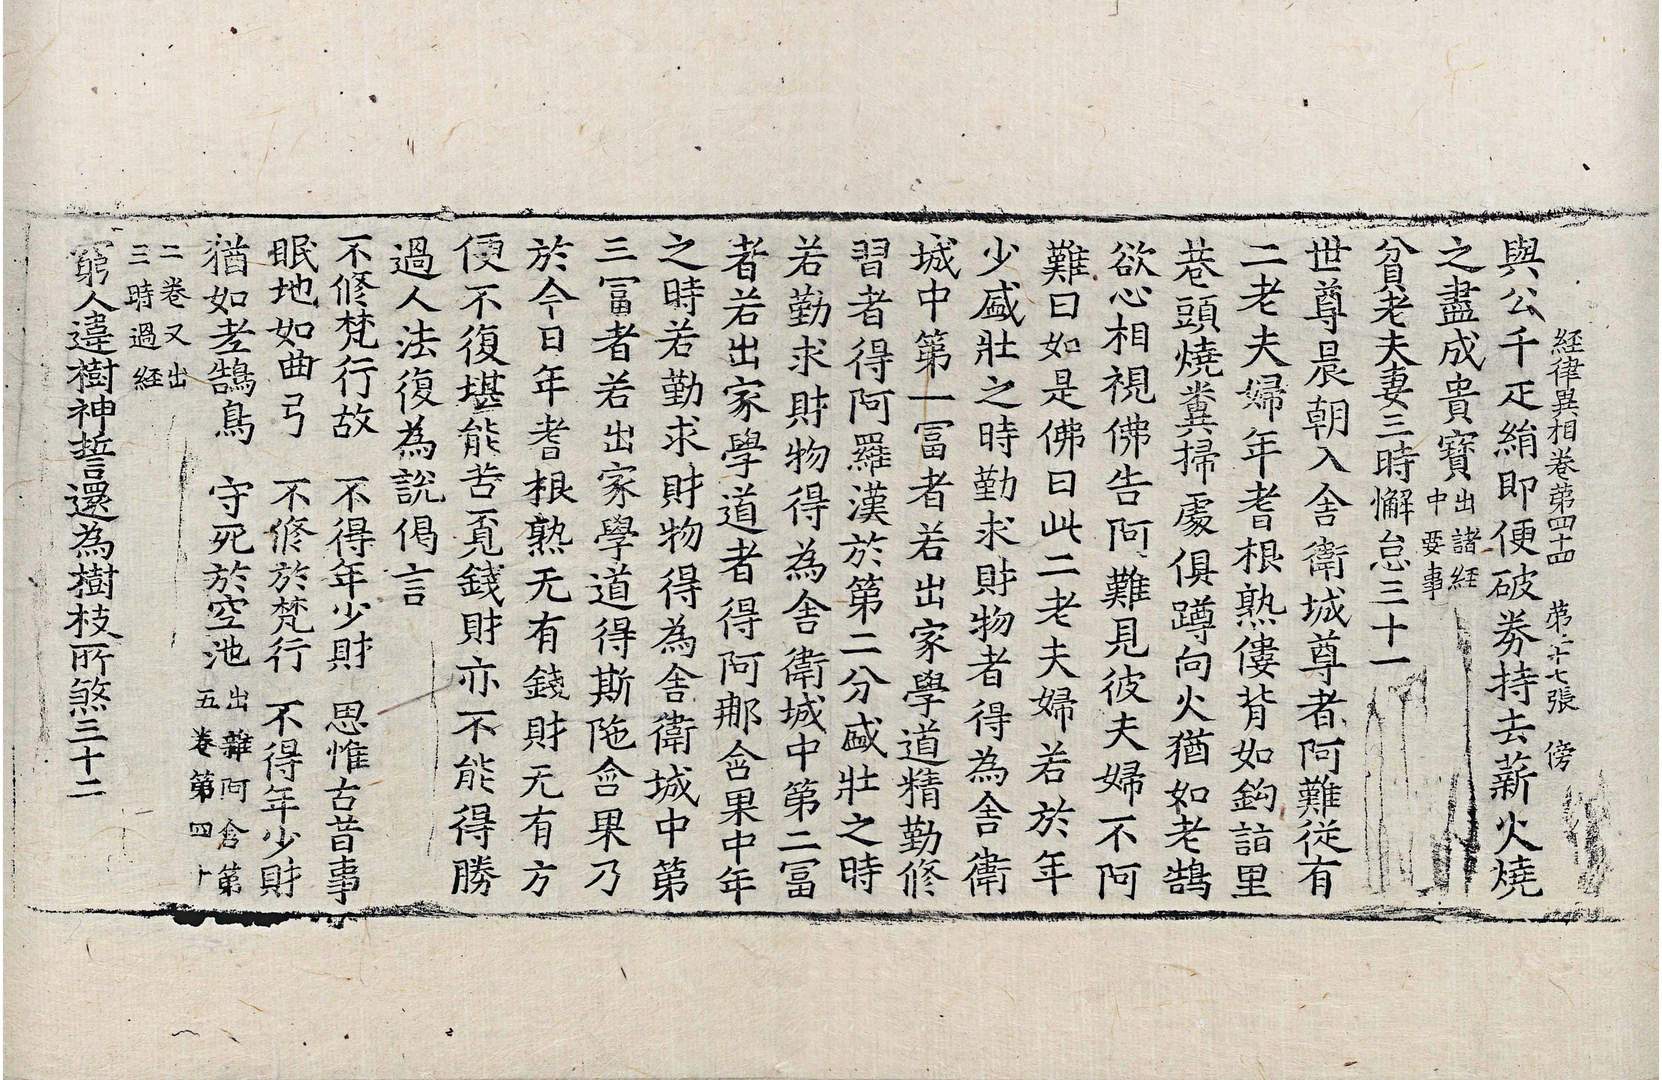 經律異相卷第四十四 第二十七張 傍
與公千疋絹即便破券持去薪火燒
之盡成貴寶出諸經中要事
貧老夫妻三時懈怠三十一
世尊晨朝入舍衛城尊者阿難從有
二老夫婦年耆根熟僂背如鈎詣里
巷頭燒糞掃處俱蹲向火猶如老鵠
欲心相視佛告阿難見彼夫婦不阿
難曰如是佛曰此二老夫婦若於年
少盛壯之時勤求財物者得為舍衛
城中第一冨者若出家學道精勤修
習者得阿羅漢於第二分盛壯之時
若勤求財物得為舍衛城中第二冨
者若出家學道者得阿那含果中年
之時若勤求財物得為舍衛城中第
三冨者若出家學道得斯陁含果乃
於今日年耆根熟无有錢財无有方
便不復堪能苦覓錢財亦不能得勝
過人法復為說偈言
不修梵行故 不得年少財 思惟古昔事
眠地如曲弓 不修於梵行 不得年少財
猶如老鵠鳥 守死於空池 出雜阿含第四十五卷第
二卷又出三時過經
窮人違樹神誓還為樹枝所煞三十二